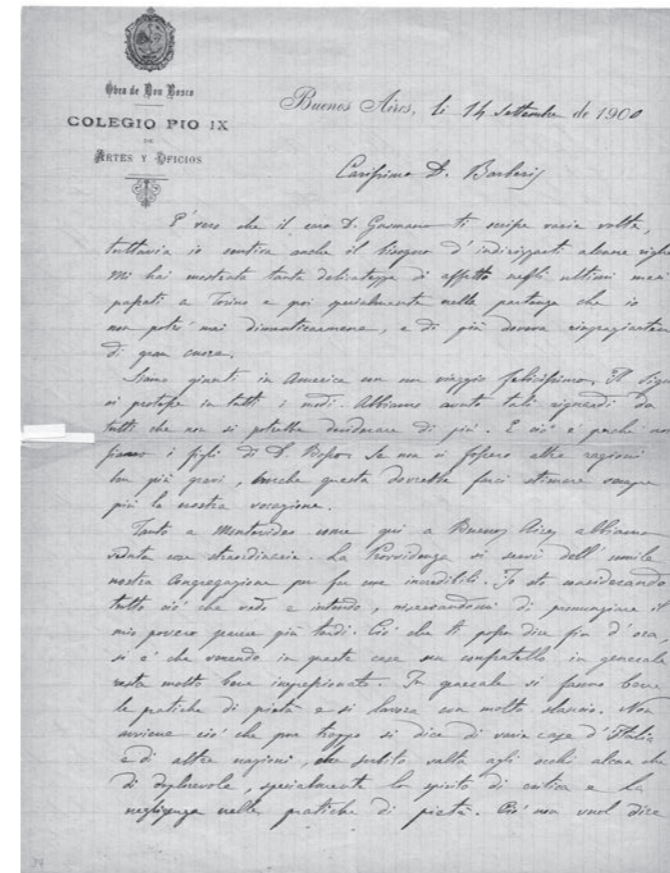 Obra de Don Bosco
COLEGIO PIO IX
DE
ARTES Y OFICIOS
Buenos Aires, li 14 Settembre de 1900
Carissimo D. Barberis
E' vero che il caro D. Gusmano ti scrisse varie volte,
tuttavia io sentiva anche il bisogno d'indirizzarti alcune righe
Mi hai mostrata tanta delicatezza di affetto negli ultimi mesi
passati a Torino e poi specialmente nella partenza che io
non potrò mai dimenticarmene, e di più doveva ringraziarti
di gran cuore.
Siamo giunti in America con un viaggio felicissimo. Il Sig
ci protesse in tutti i modi. Abbiamo avuto tali riguardi da
tutti che non si potrebbe desiderare di più. E ciò è perchè noi
siamo i figli di D. Bosco. Se non ci fossero altre ragioni
ben più gravi, anche questa dovrebbe farci stimare sempre
più la nostra vocazione.
Tanto a Montevideo come qui a Buenos Aires abbiamo
veduto cose straordinarie. La Provvidenza si servì dell'umile
nostra Congregazione per far cose incredibili. Io sto considerando
tutto ciò che vedo e intendo, riserbandomi di pronunziare il
mio povero parere più tardi. Ciò che ti posso dire fin d'ora
si è che venendo in queste case un confratello in generale
resta molto bene impressionato. In generale si fanno bene
le pratiche di pietà e si lavora con molto slancio. Non
avviene ciò che pur troppo si dice di varie case d'Italia
e di altre nazioni, che subito salta agli occhi alcun che
di deplorevole, specialmente lo spirito di critica e la
negligenza nelle pratiche di pietà. Ciò non vuol dire